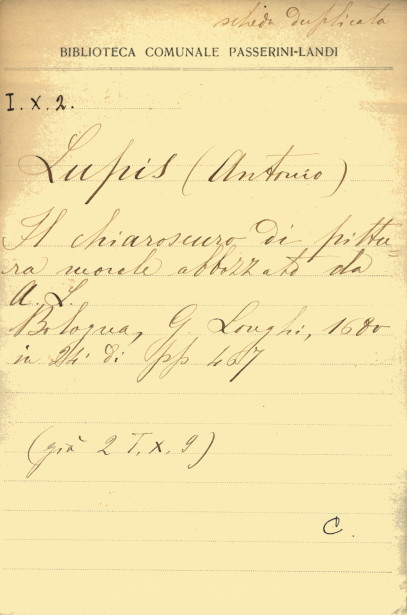 scheda duplicata
BIBLIOTECA COMUNALE PASSERINI-LANDI
I. x. 2.
Lupis (Antonio)
Il chiaroscuro di pittu=
ra morale abbozzato da
A. L.
Bologna, G. Longhi, 1680
in 24° di pp 467
(già 2 T. x. 9)
C.